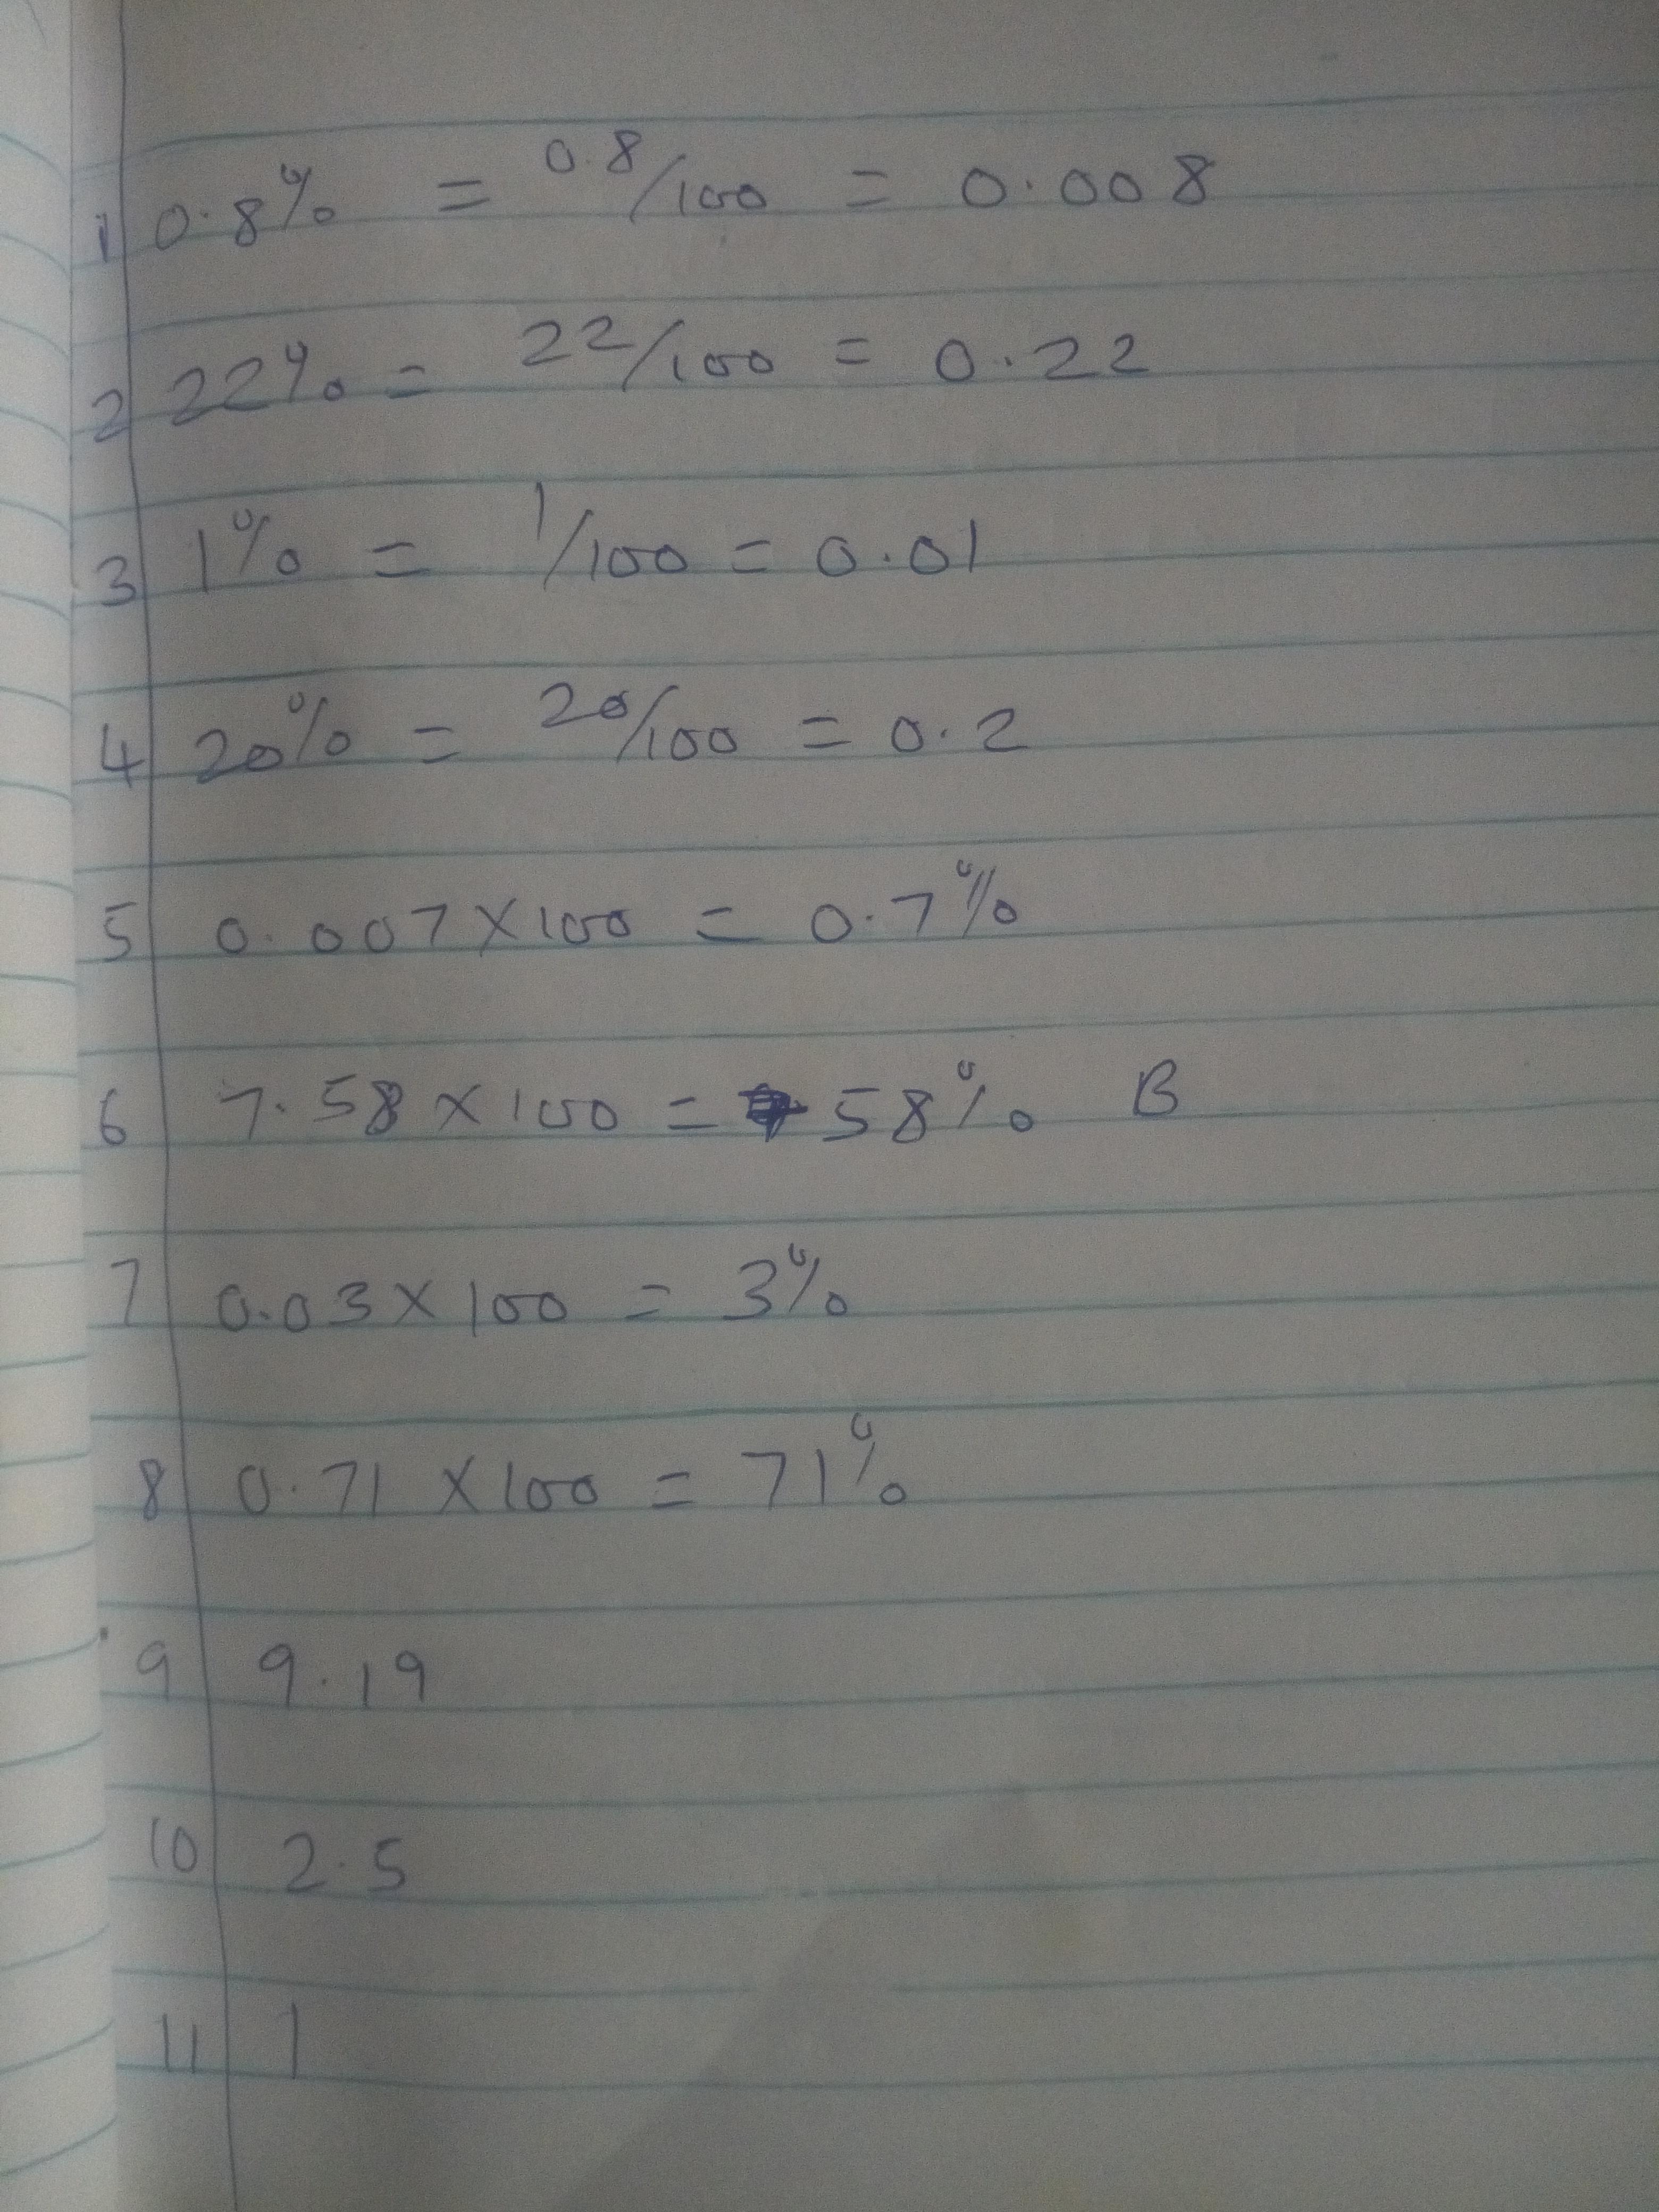 1 0.8% = 0.8/100 = 0.008
2 22% = 22/100 = 0.22
3 1% = 1/100 = 0.01
4 20% = 20/100 = 0.2
5 0.007 × 100 = 0.7%
6 7.58 × 100 = 58% B
7 0.03 × 100 = 3%
8 0.71 × 100 = 71%
9 9.19
10 2.5
11 1